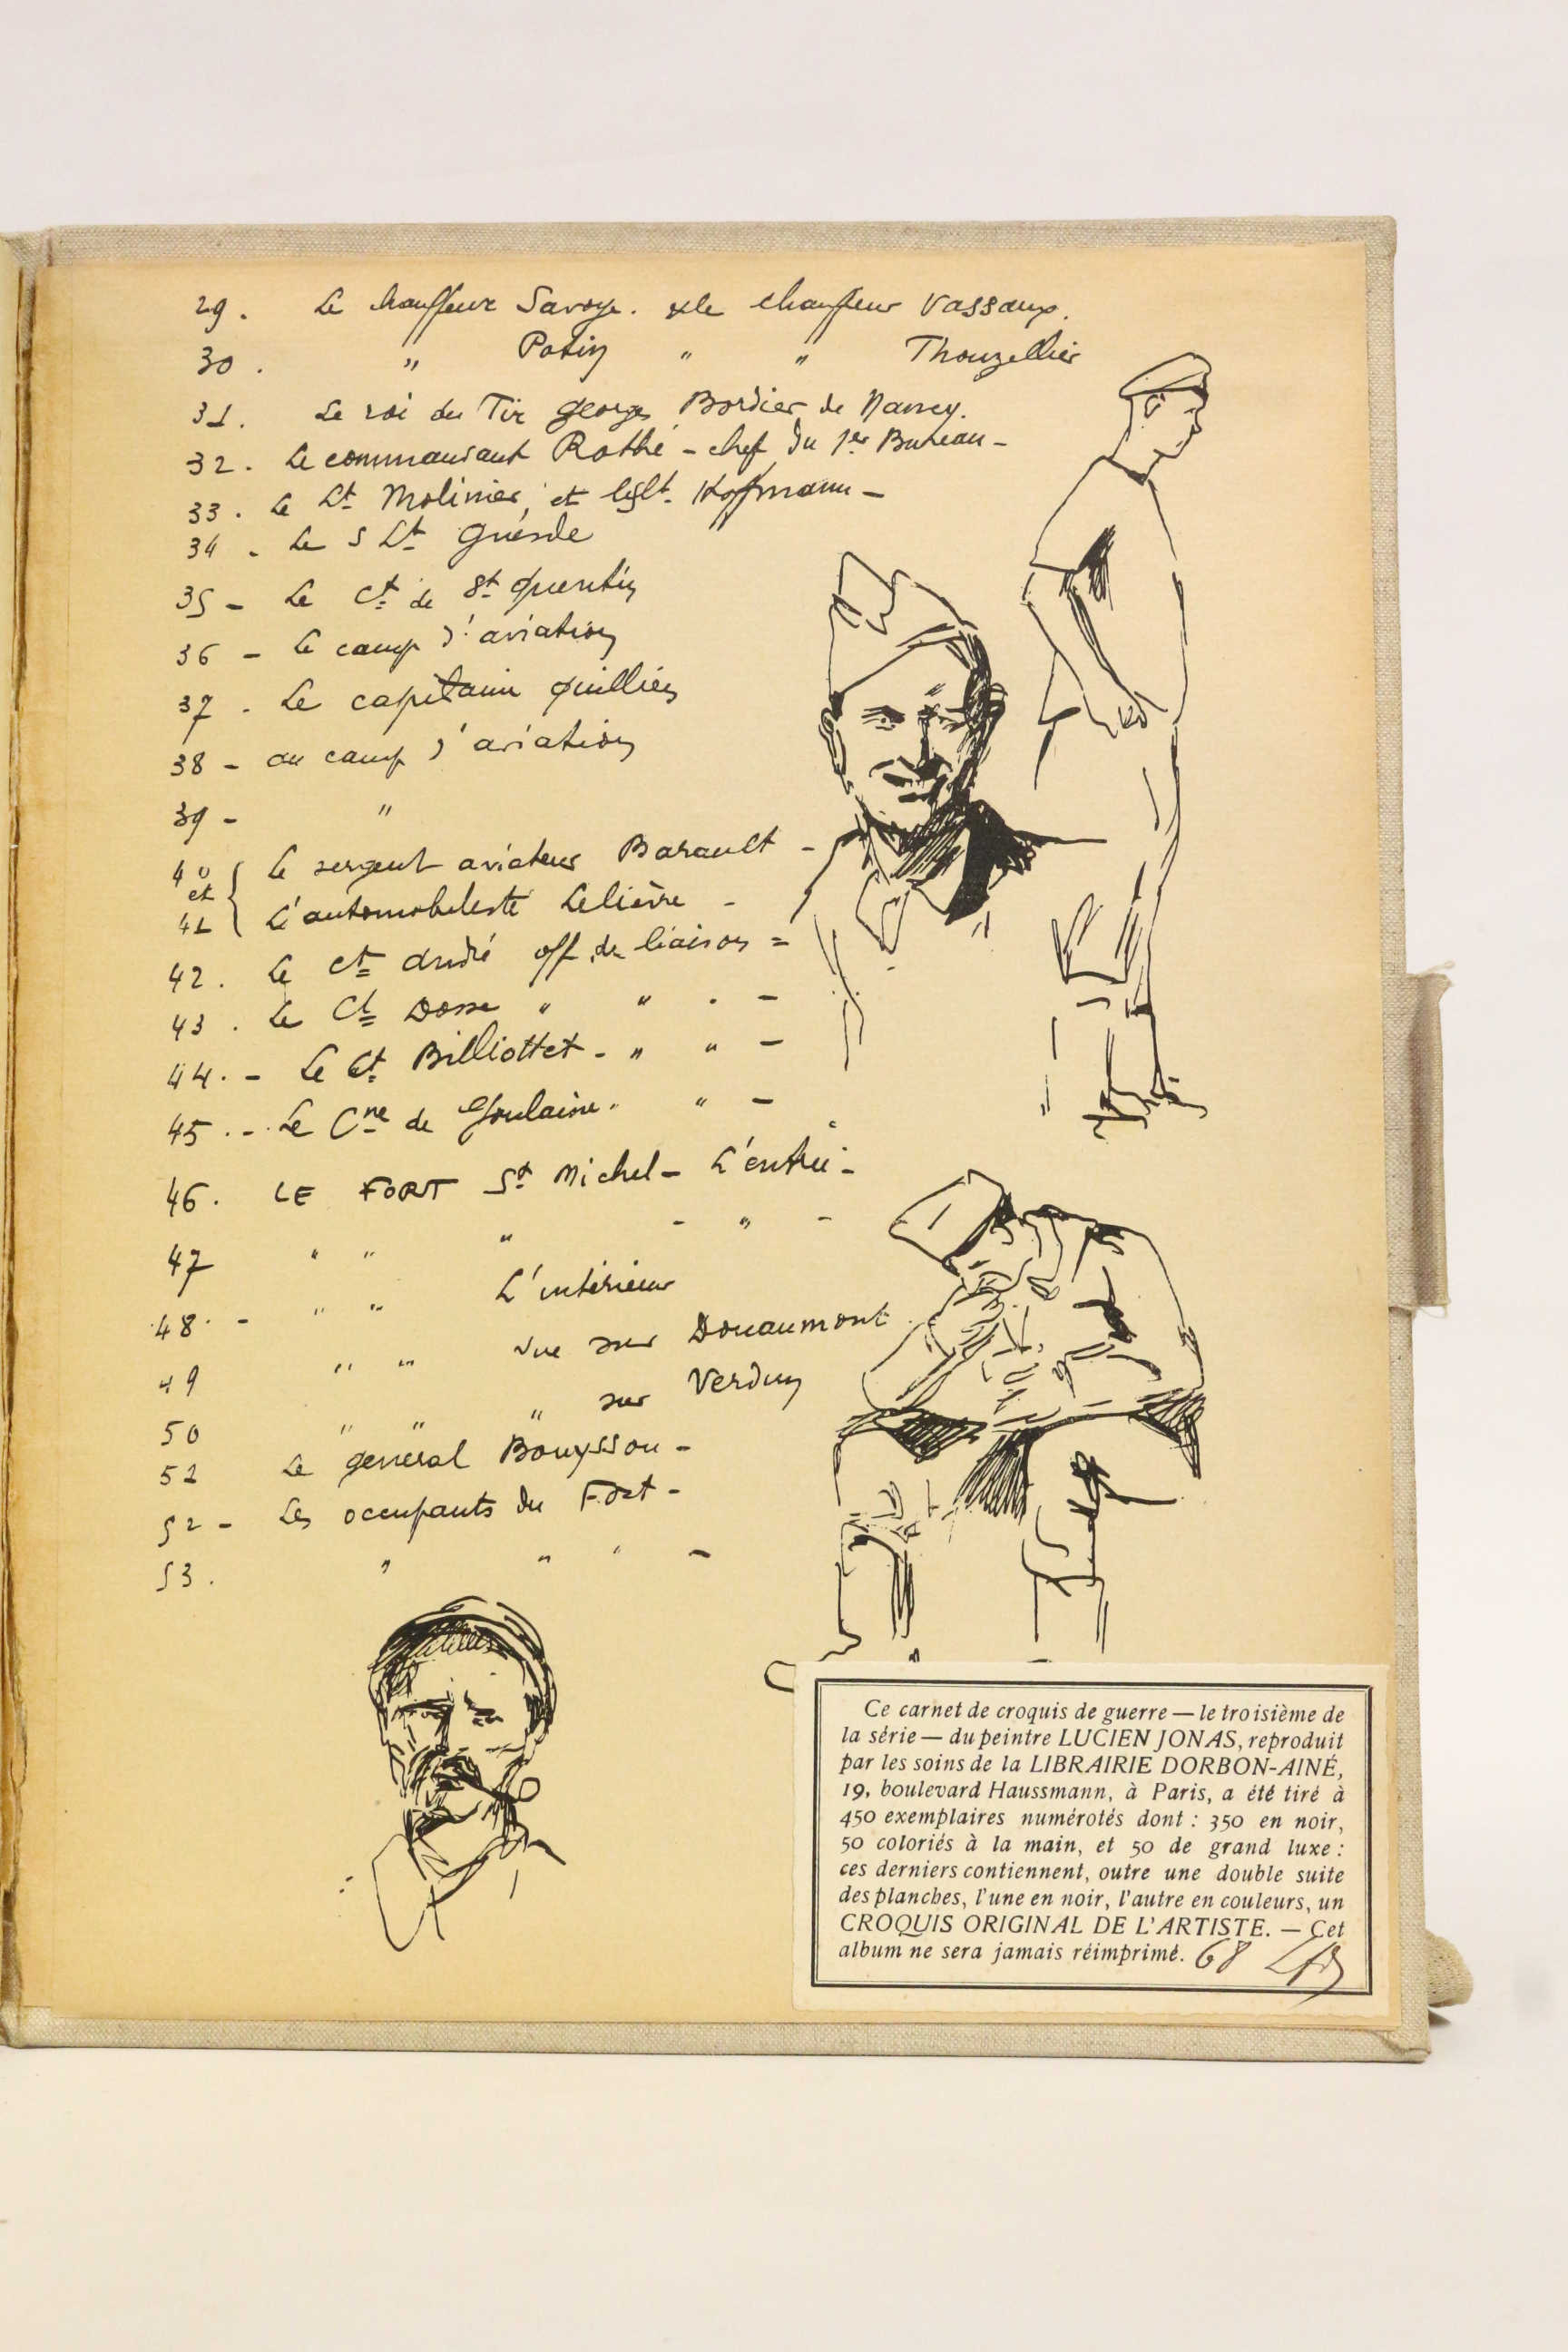 29. Le chauffeur Savoye. & le chauffeur Vassaux.
30. " Potin " " Thouzellier
31. Le roi du Tir Georges Bordier de Nancy.
32. Le commandant Rothé - chef du 1er Bureau -
33. Le Lt Molinier et le s/Lt. Hoffmann -
34 - Le S Lt Guesde
35 - Le Ct de St Quentin
36 - Le camp d'aviation
37. Le capitaine Quillien
38 - au camp d'aviation
39 - "
40 Le sergent aviateur Barault -
et
41 L'automobiliste Lelièvre -
42. Le Ct André off. de liaison =
43. Le Ct Dosse " " . -
44. - Le Ct Billiottet - " " -
45. - Le Cne de Goulaine " " -
46. LE FORT St Michel - L'entrée -
47 " " " - " -
48. - " " L'intérieur
49 " " vue sur Douaumont
50 " " " sur Verdun
51 Le général Bouyssou -
52 - Les occupants du Fort -
53. " " " -
Ce carnet de croquis de guerre — le troisième de
la série — du peintre LUCIEN JONAS, reproduit
par les soins de la LIBRAIRIE DORBON-AINÉ,
19, boulevard Haussmann, à Paris, a été tiré à
450 exemplaires numérotés dont : 350 en noir,
50 coloriés à la main, et 50 de grand luxe :
ces derniers contiennent, outre une double suite
des planches, l'une en noir, l'autre en couleurs, un
CROQUIS ORIGINAL DE L'ARTISTE. — Cet
album ne sera jamais réimprimé. 68